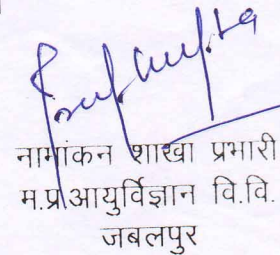 नामांकन शाखा प्रभारी
म.प्र.आयुर्विज्ञान वि.वि.
जबलपुर